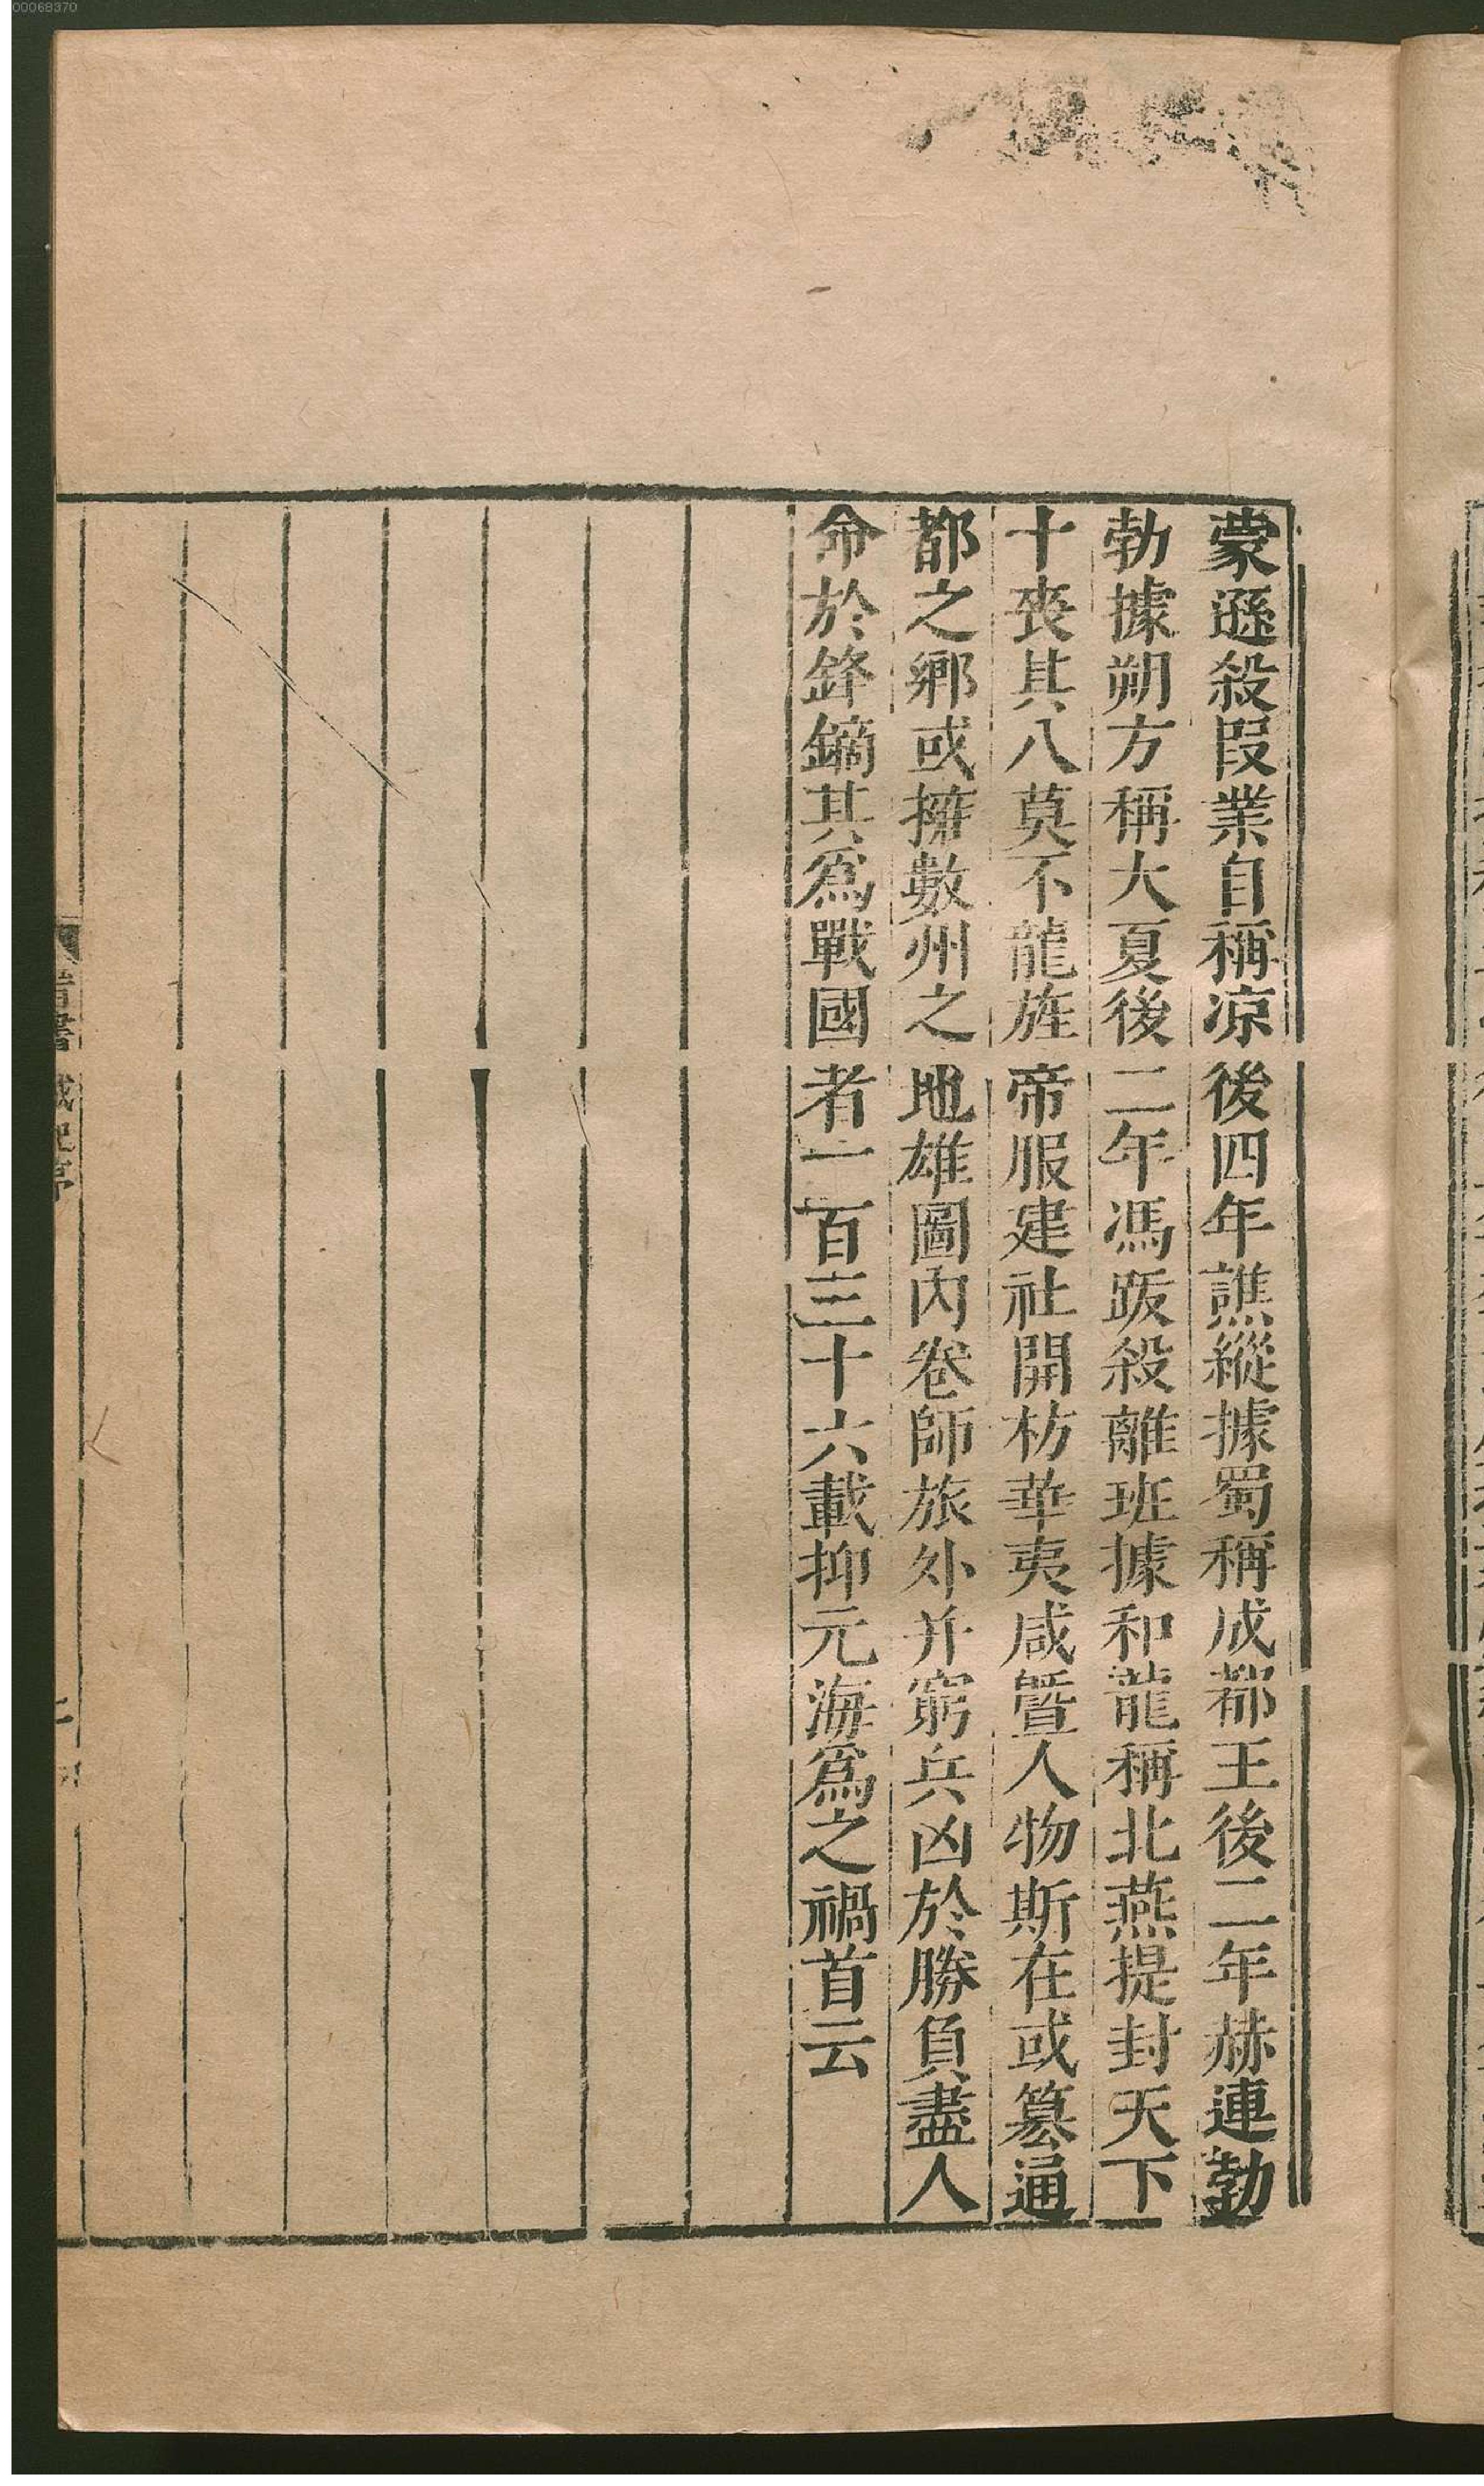 00068370
蒙遜殺段業自稱凉後四年譙縱據蜀稱成都王後二年赫連勃
勃據朔方稱大夏後二年馮跋殺離班據和龍稱北燕提封天下
十喪其八莫不龍旌帝服建社開枋華夷咸曁人物斯在或篡通
都之鄉或擁數州之地雄圖內卷師旅外并窮兵凶於勝負盡人
命於鋒鏑其爲戰國者一百三十六載抑元海爲之禍首云
晉書 載記序